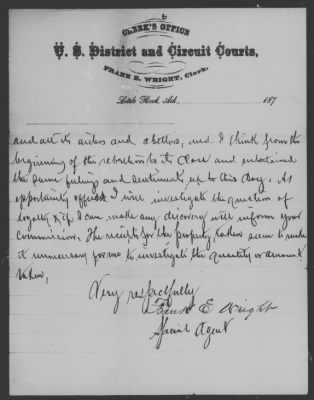 CLERK'S OFFICE
U. S. District and Circuit Courts,
FRANK E. WRIGHT, Clerk.
Little Rock, Ark. 187
and all its aiders and abettors, and I think from the
beginning of the rebellion to its close and entertained
the same feelings and sentiments up to this day. As
opportunity offers I will investigate the question of
loyalty & if I can make any discovery will inform your
Commission. The receipts for the property taken seem to make
it unnecessary for me to investigate the quantity or amount
taken,
Very respectfully
Frank E Wright
Special Agent